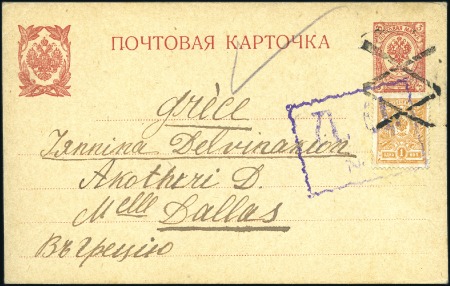 ПОЧТОВАЯ КАРТОЧКА
Grèce
Iannina Delvinakion
Akotheri D.
Melle Dallas
Въ Грецію
Д.
1